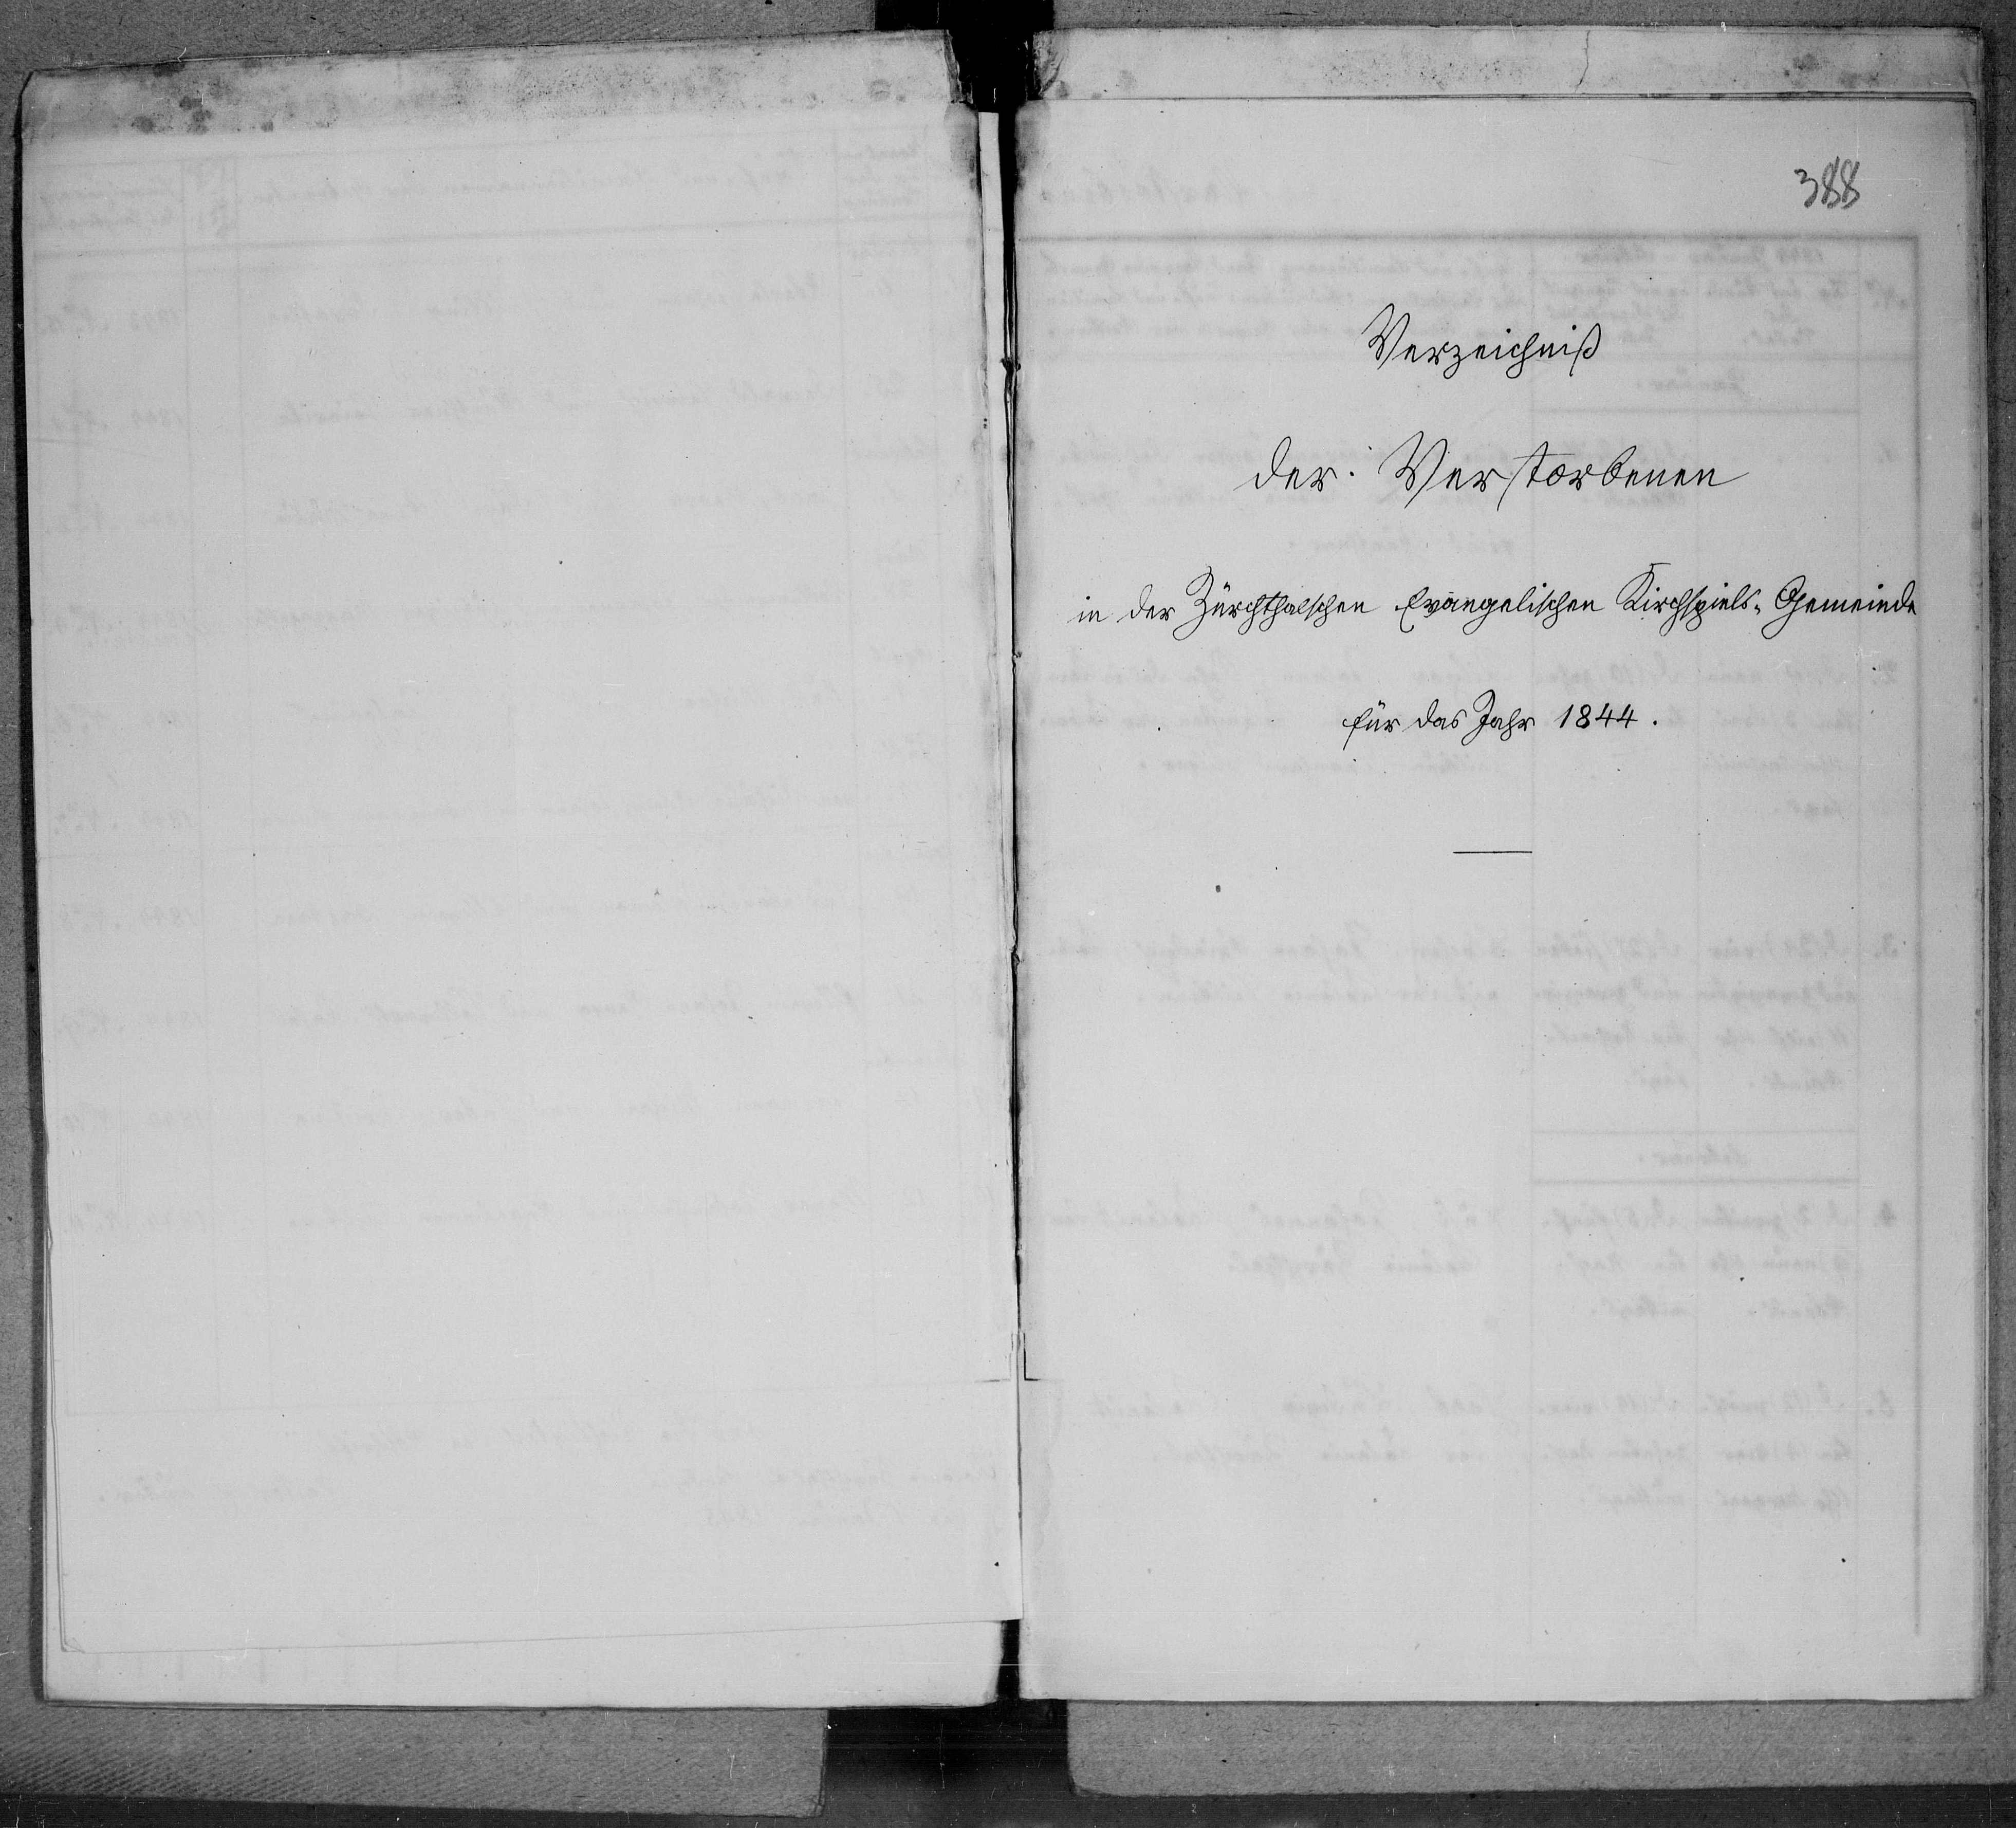 388
Verzeichniß
der Verstorbenen
in der Zürchthalschen Evangelischen Kirchspiels-Gemeinde
für das Jahr 1844.